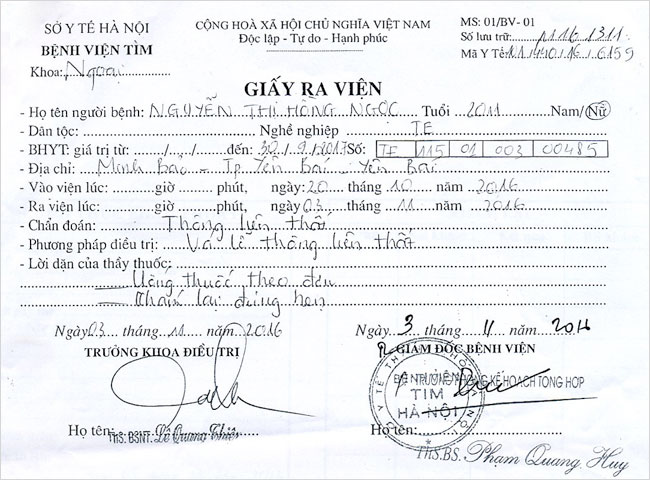 SỞ Y TẾ HÀ NỘI
BỆNH VIỆN TIM
Khoa: Ngoại
CỘNG HOÀ XÃ HỘI CHỦ NGHĨA VIỆT NAM
Độc lập - Tự do - Hạnh phúc
MS: 01/BV- 01
Số lưu trữ:
Mã Y Tế
GIẤY RA VIỆN
- Họ tên người bệnh: NGUYỄN THỊ HỒNG NGỌC Tuổi 2011 Nam/Nữ
- Dân tộc: Nghề nghiệp TE
- BHYT: giá trị từ: / / đến: 30/9/2017 Số: TE 115 01 003 00485
- Địa chỉ: Minh Bảo - Tp Yên Bái - Yên Bái
- Vào viện lúc: giờ phút, ngày: 20 tháng 10 năm 2016
- Ra viện lúc: giờ phút, ngày 03 tháng 11 năm 2016
- Chẩn đoán: Thông liên thất
- Phương pháp điều trị: Vá lỗ thông liên thất
- Lời dặn của thầy thuốc:
- Uống thuốc theo đơn
- Khám lại đúng hẹn
Ngày 03 tháng 11 năm 2016
TRƯỞNG KHOA ĐIỀU TRỊ
Họ tên: ThS.BSNT. Lê Quang Thiện
Ngày 3 tháng 11 năm 2016
GIÁM ĐỐC BỆNH VIỆN
TRƯỞNG PHÒNG KẾ HOẠCH TỔNG HỢP
BỆNH VIỆN
TIM
HÀ NỘI
Họ tên:
ThS.BS. Phạm Quang Huy